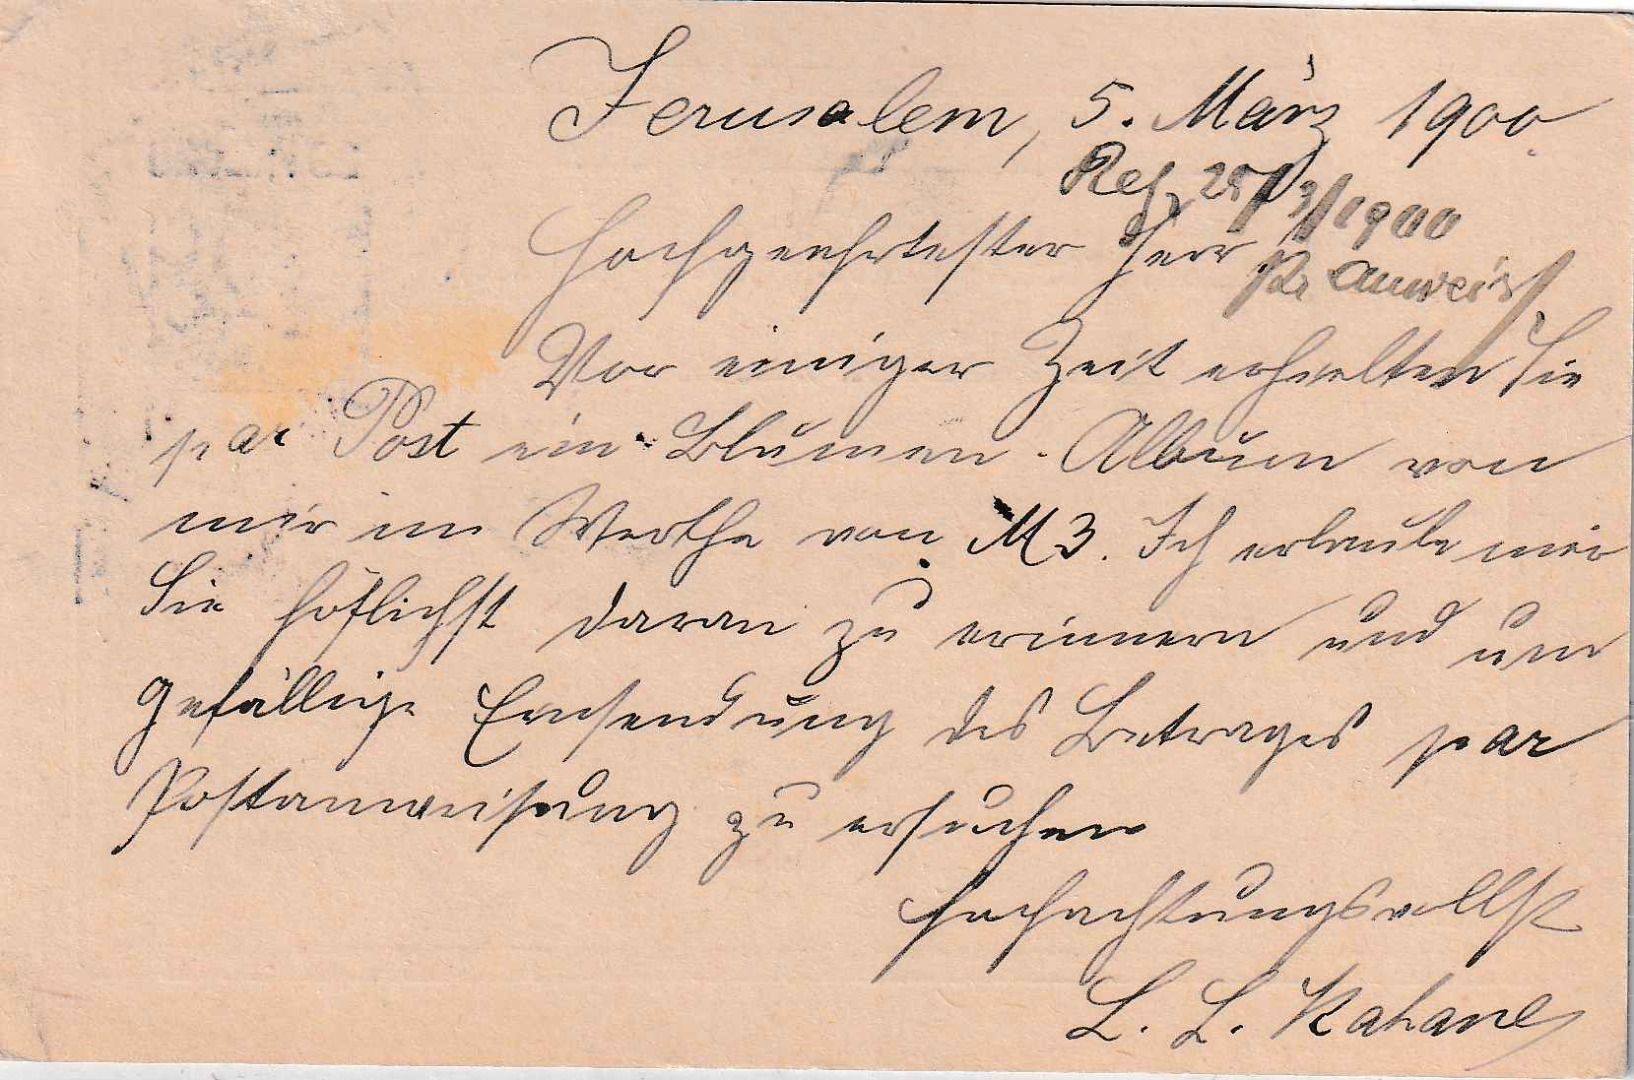 Jerusalem, 5. März 1900
25/3/1900
Hochgeehrtester Herr
p. Anweis
Vor einiger Zeit erhielten Sie
par Post ein Blumen-Album von
mir im Werthe von M 3. Ich erlaube mir
Sie höflichst daran zu erinnern und um
gefällige Einsendung des Betrages par
Postanweisung zu ersuchen
Hochachtungsvollst
L. L. Kahane